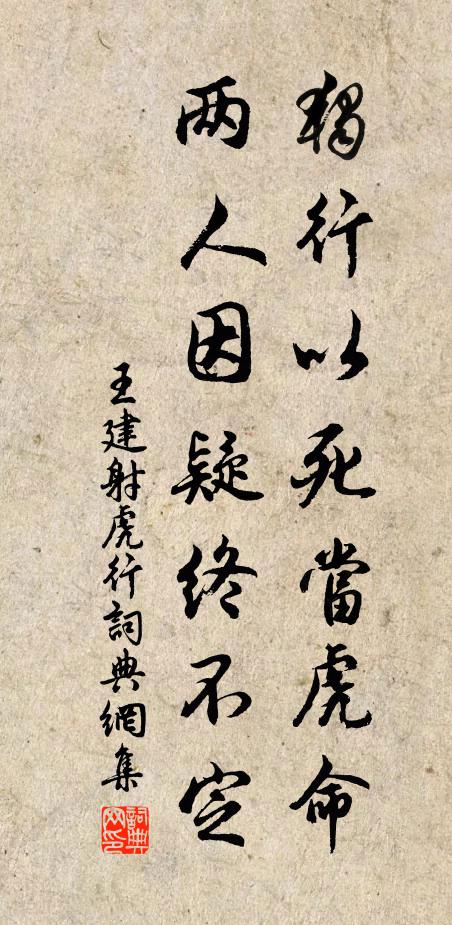 獨行以死當虎命
两人因疑終不定
王建射虎行詞典網集
詞典网印